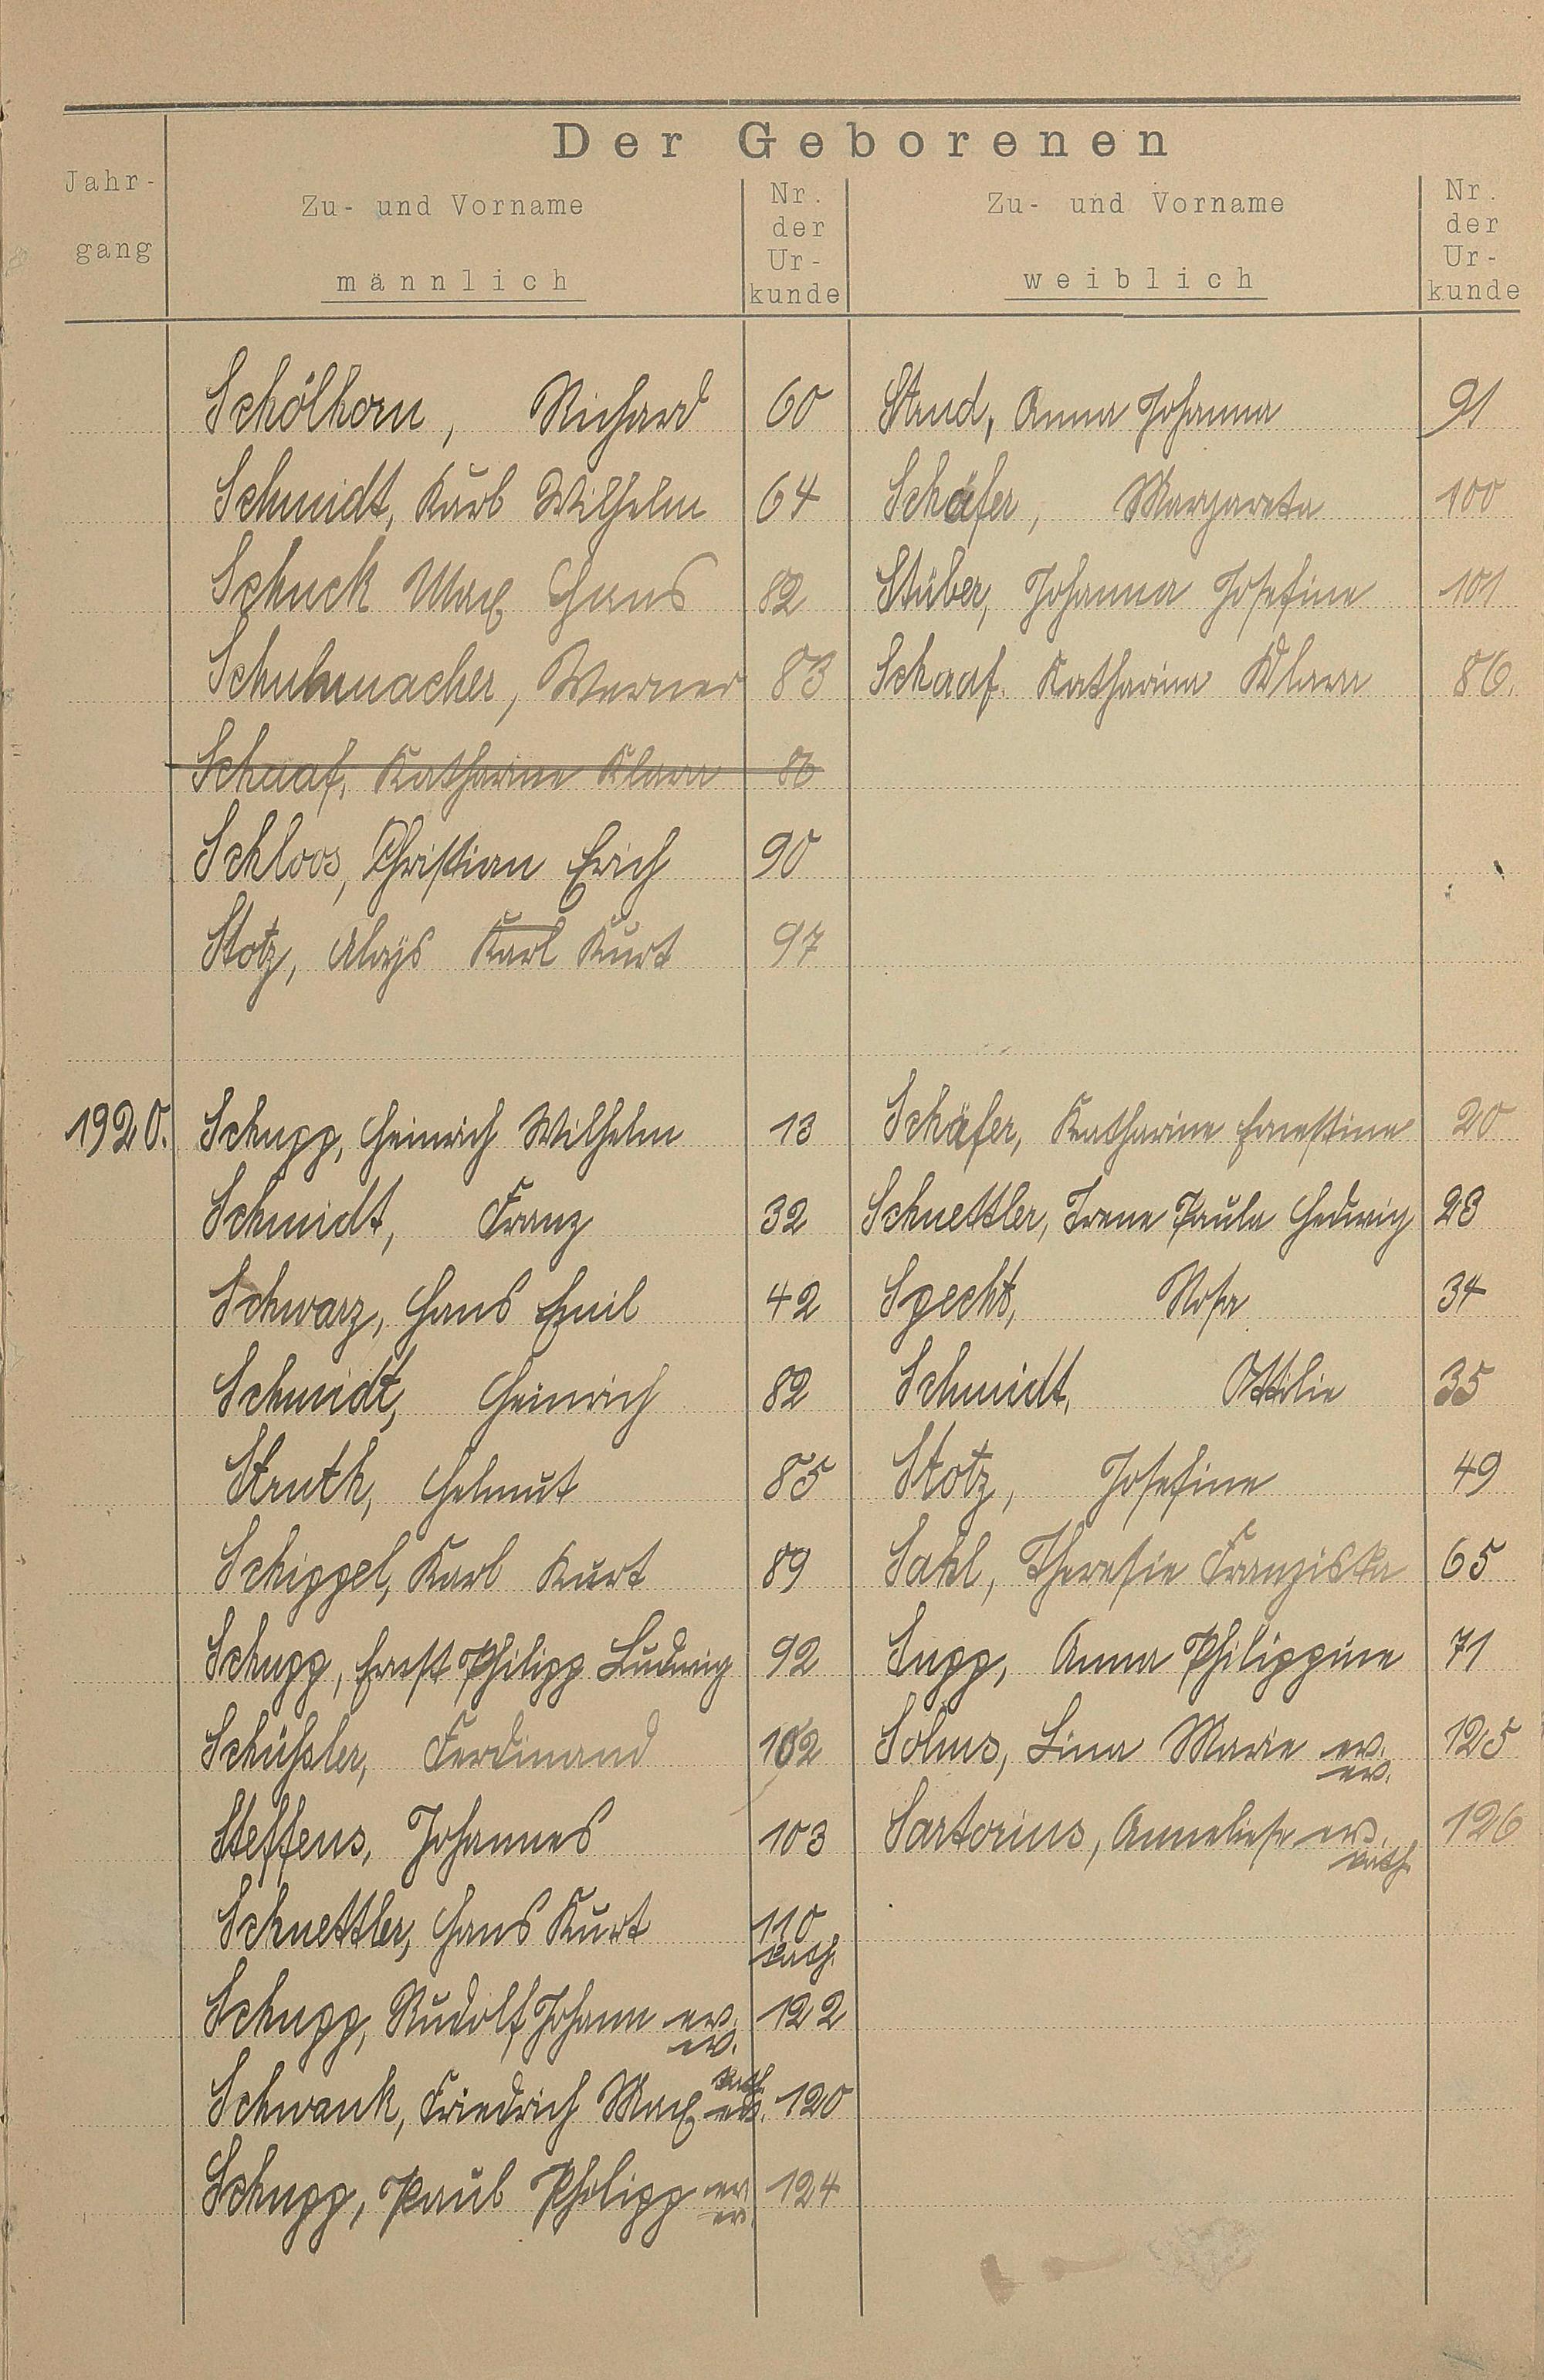 Der Geborenen
Jahr-
gang
Zu- und Vorname
männlich
Nr.
der
Ur-
kunde
Zu- und Vorname
weiblich
Nr.
der
Ur-
kunde
Schölhorn, Richard 60 Staud, Anna Johanna 91
Schmidt, Karl Wilhelm 64 Schäfer, Margareta 100
Schuck Max Hans 82 Stüber, Johanna Josefine 101
Schuhmacher, Werner 83 Schaaf. Katharina Klara 86.
Schaaf, Katharina Klara 86
Schloos, Christian Erich 90
Stotz, Aloys Karl Kurt 97
1920. Schupp, Heinrich Wilhelm 13 Schäfer, Katharine Ernestine 20
Schmidt, Franz 32 Schnettler, Irene Paula Hedwig 28
Schwarz, Hans Emil 42 Specht, Rosa 34
Schmidt, Heinrich 82 Schmidt, Ottilie 35
Struth, Helmut 85 Stotz, Josefine 49
Schippel, Karl Kurt 89 Sahl, Theresie Franziska 65
Schupp, Ernst Philipp Ludwig 92 Supp, Anna Philippine 71
Schüssler, Ferdinand 102 Solms, Lina Marie ev. 125
ev.
Steffens, Johannes 103 Sartorius, Anneliese ev. 126
kath.
Schnettler, Hans Kurt 110
kath.
Schupp, Rudolf Johann ev. 122
ev.
kath.
Schwank, Friedrich Max ev. 120
Schupp, Paul Philipp ev 124
ev.